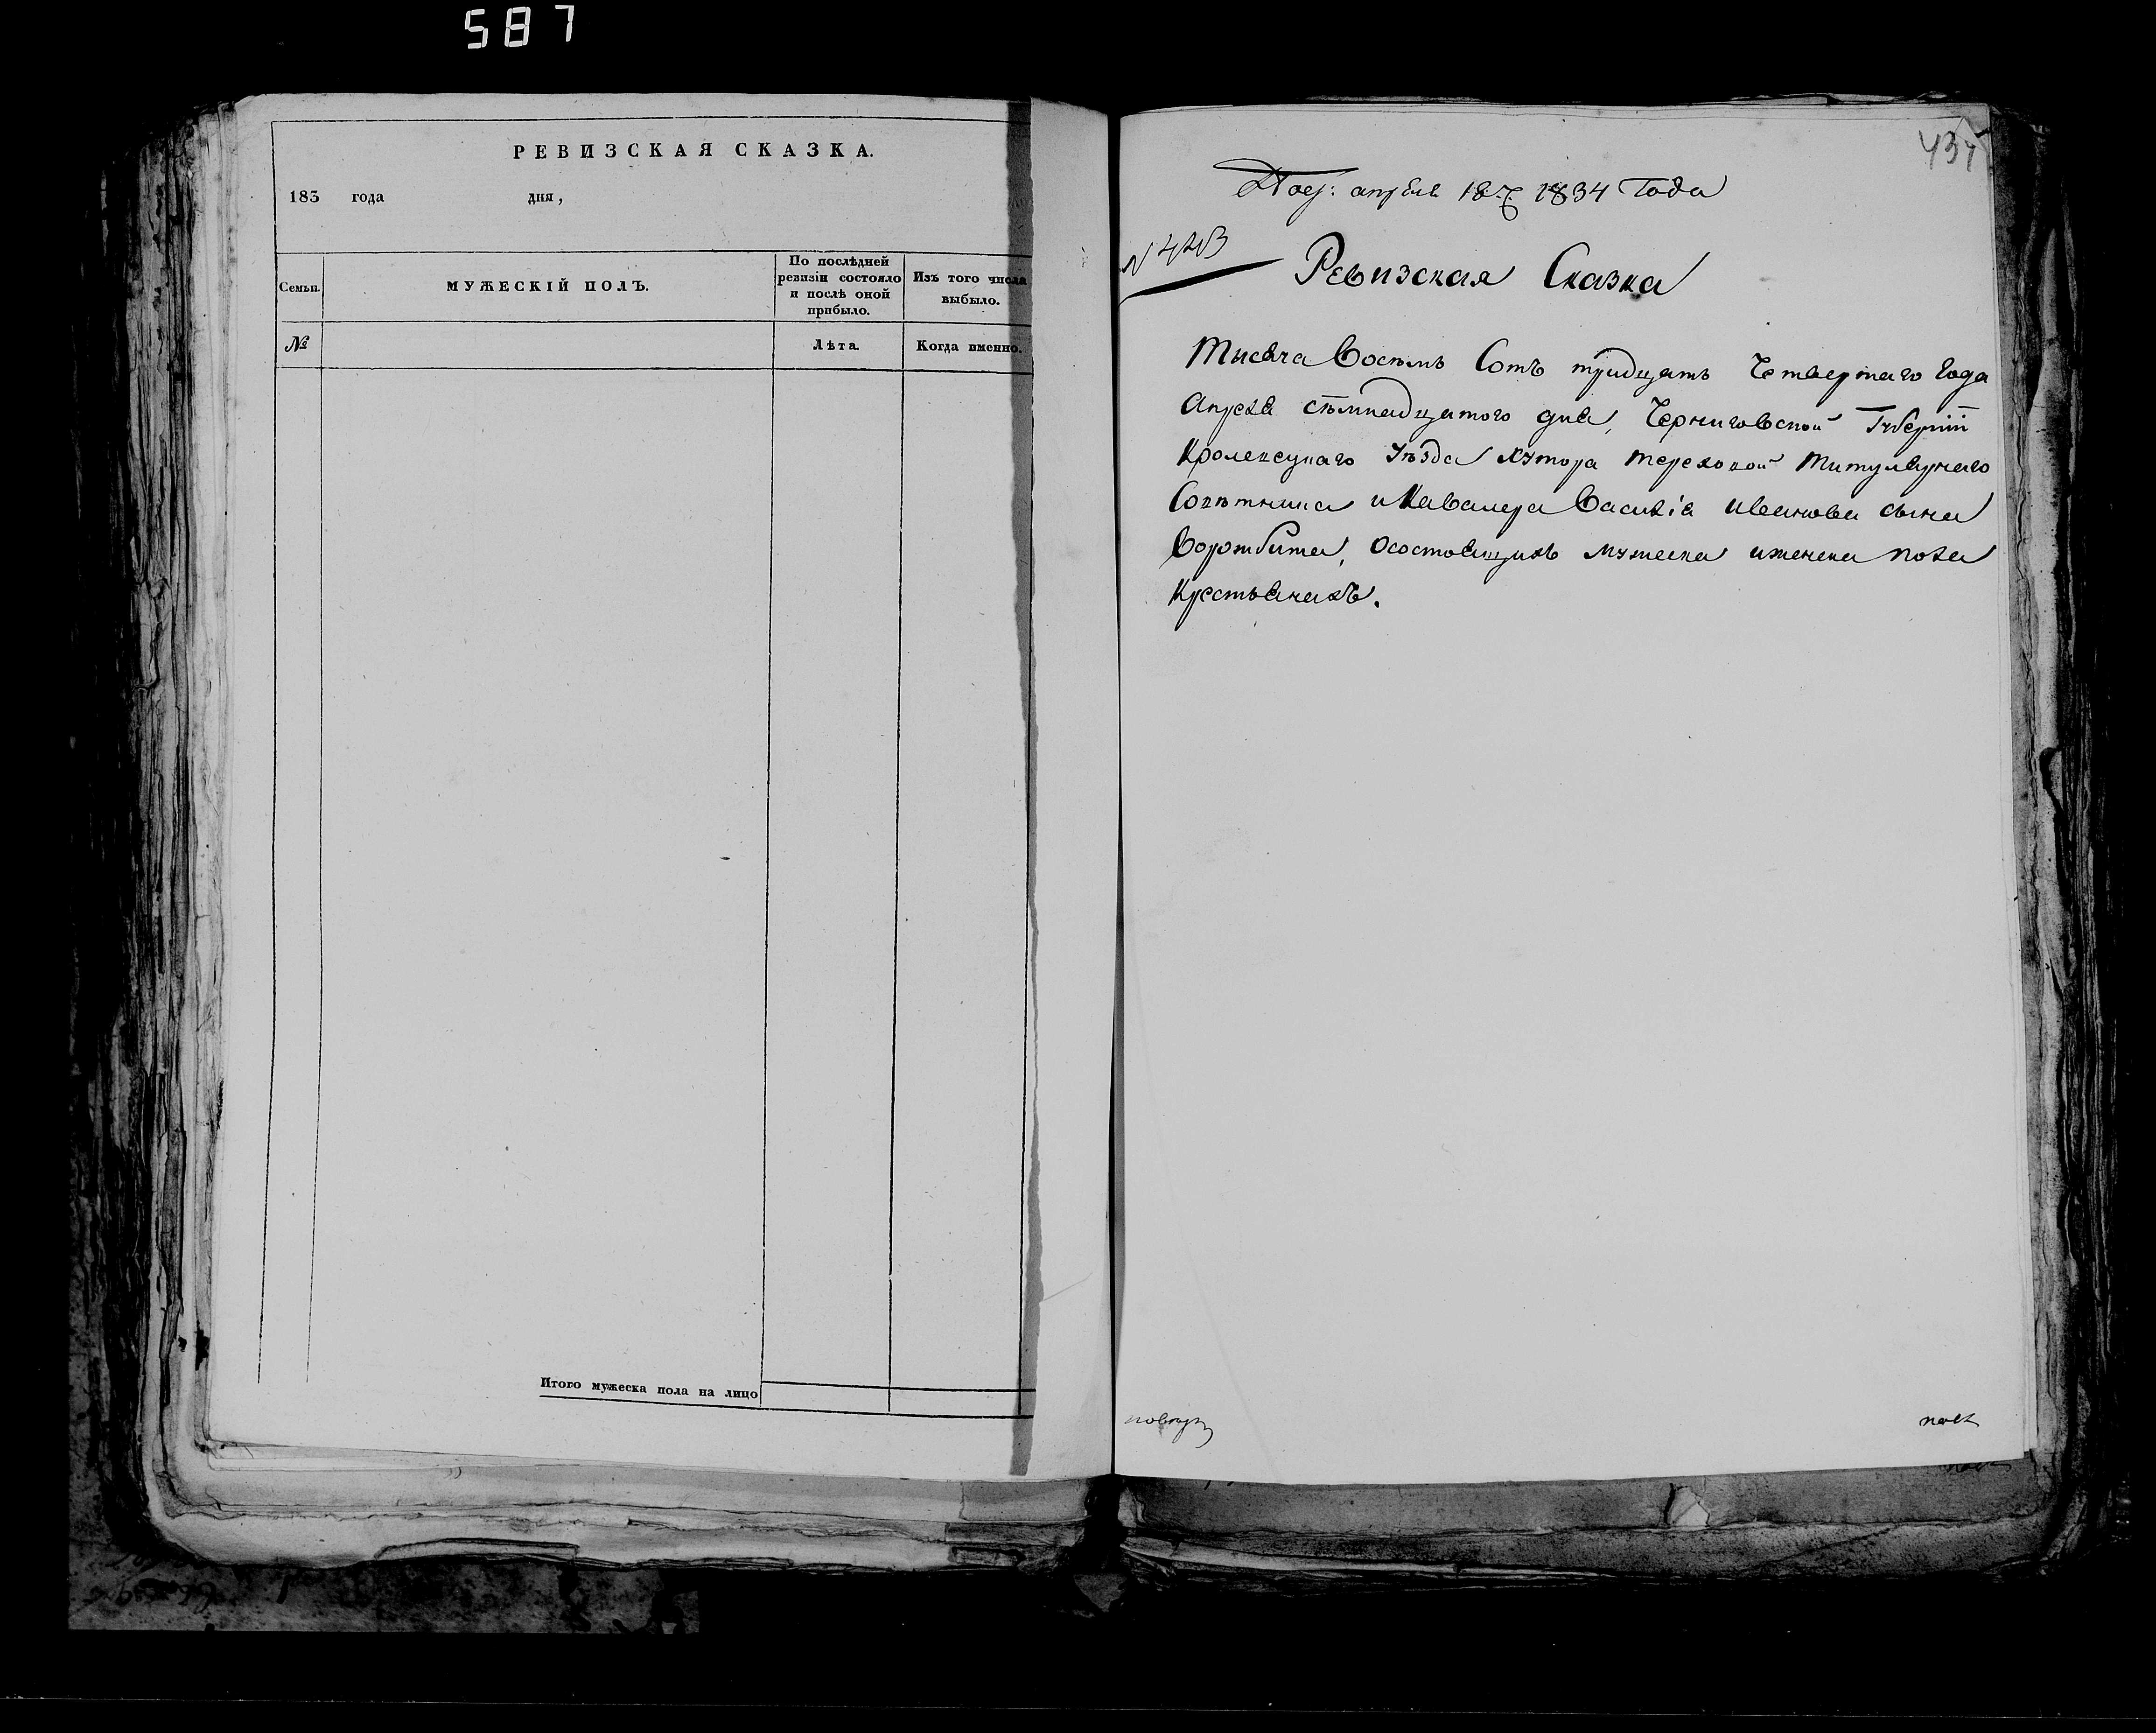 587
РЕВИЗСКАЯ СКАЗКА.
183 года дня,
Семьи.
МУЖЕСКІЙ ПОЛЪ.
По послѣдней ревизіи состояло и послѣ оной прибыло.
Изъ того числа выбыло.
№
Лѣта.
Когда именно.
Итого мужеска пола на лицо
434
апреля 18 1834 Года
Ревизская Сказка
Тысяча Восѣмъ Сотъ тридцать Четвертаго Года
Апреля сѣмнадцатого дня, Черниговской Губерніи
Кролевецкаго Уѣзда Хутора Тереховой Титулярнаго
Совѣтника и Кавалера Василія Иванова сына
Ворожбита, О состоящихъ мужеска и женска пола
Крестьянахъ.